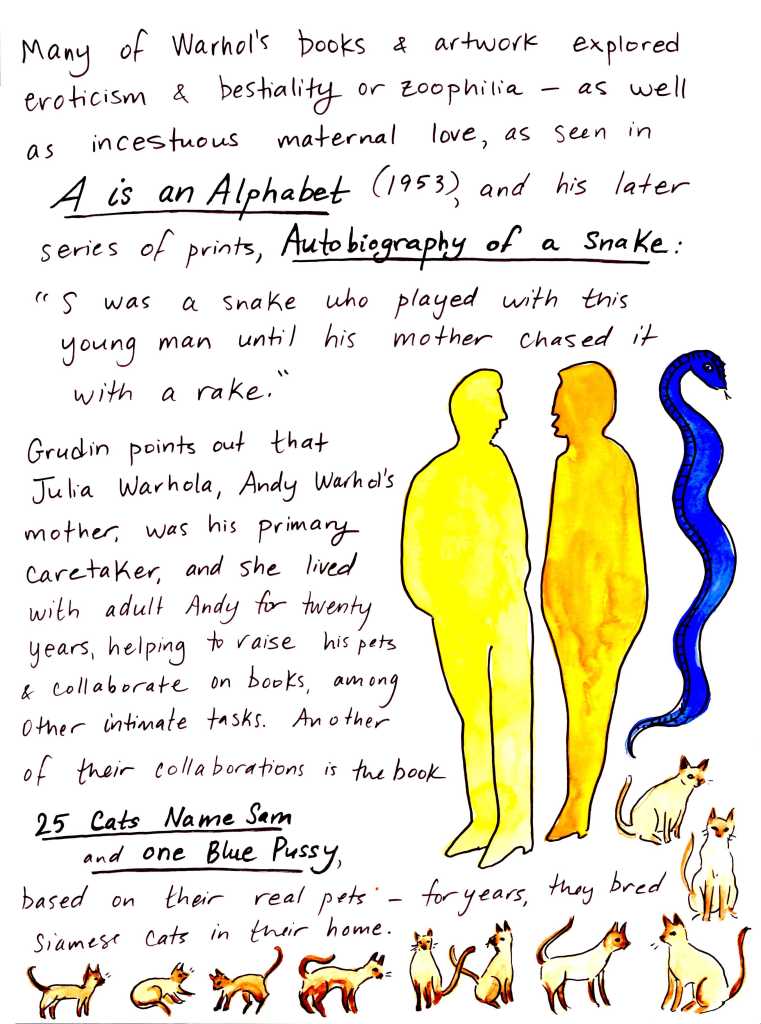 Many of Warhol's books & artwork explored
eroticism & bestiality or zoophilia – as well
as incestuous maternal love, as seen in
A is an Alphabet (1953), and his later
series of prints, Autobiography of a Snake:
"S was a snake who played with this
young man until his mother chased it
with a rake."
Grudin points out that
Julia Warhola, Andy Warhol's
mother, was his primary
caretaker, and she lived
with adult Andy for twenty
years, helping to raise his pets
& collaborate on books, among
other intimate tasks. Another
of their collaborations is the book
25 Cats Name Sam
and one Blue Pussy,
based on their real pets – for years, they bred
Siamese cats in their home.